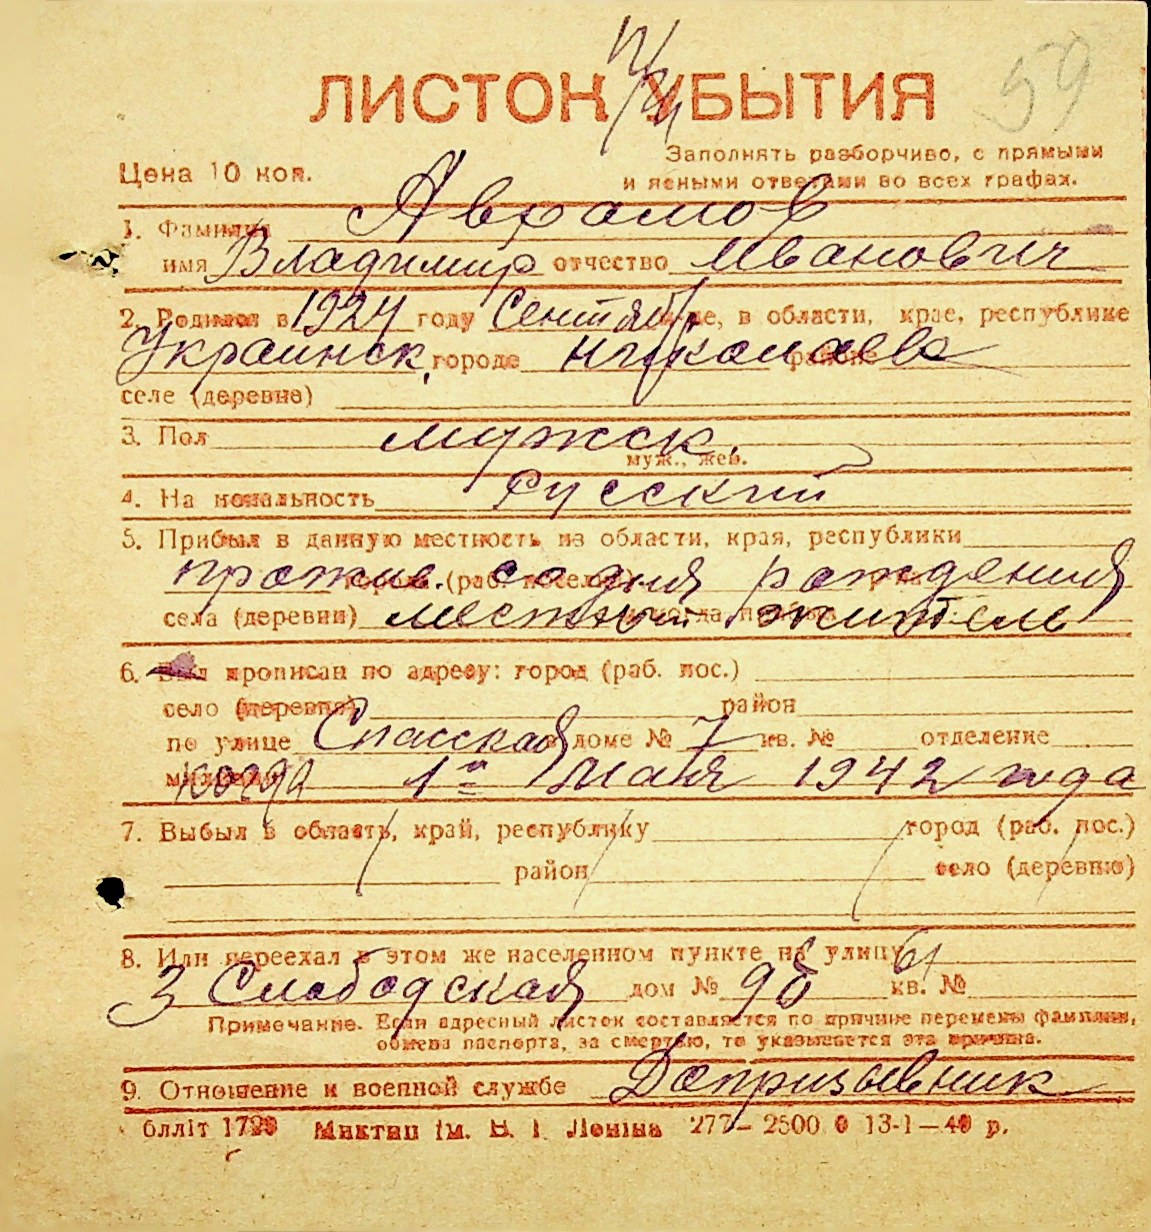 59
ЛИСТОК УБЫТИЯ
Цена 10 коп.
Заполнять разборчиво, с прямыми
и ясными ответами во всех графах.
1. Фамилия Аврамов
имя Владимир отчество Иванович
2. Родился в 1924 году Сентябр де, в области, крае, республике
Украинск. городе Николаеве районе
селе (деревне)
3. Пол мужск.
муж., жен.
4. Национальность Русский
5. Прибыл в данную местность из области, края, республики
прожив. со дня рождения города (раб. поселка)
села (деревни) местный житель
6. Был прописан по адресу: город (раб. пос.)
село (деревня) район
по улице Спасская в доме № 7 кв. № отделение
милиции когда 1го Мая 1942 года
7. Выбыл в область, край, республику город (раб. пос.)
район село (деревню)
8. Или переехал в этом же населенном пункте на улицу
3 Слободская 61 дом № 9б кв. №
Примечание. Если адресный листок составляется по причине перемены фамилии,
обмена паспорта, за смертью, то указывается эта причина.
9. Отношение к военной службе Допризывник
блліт 1729 Миктип ім. В. І. Леніна 277–2500 0 13-1—40 р.